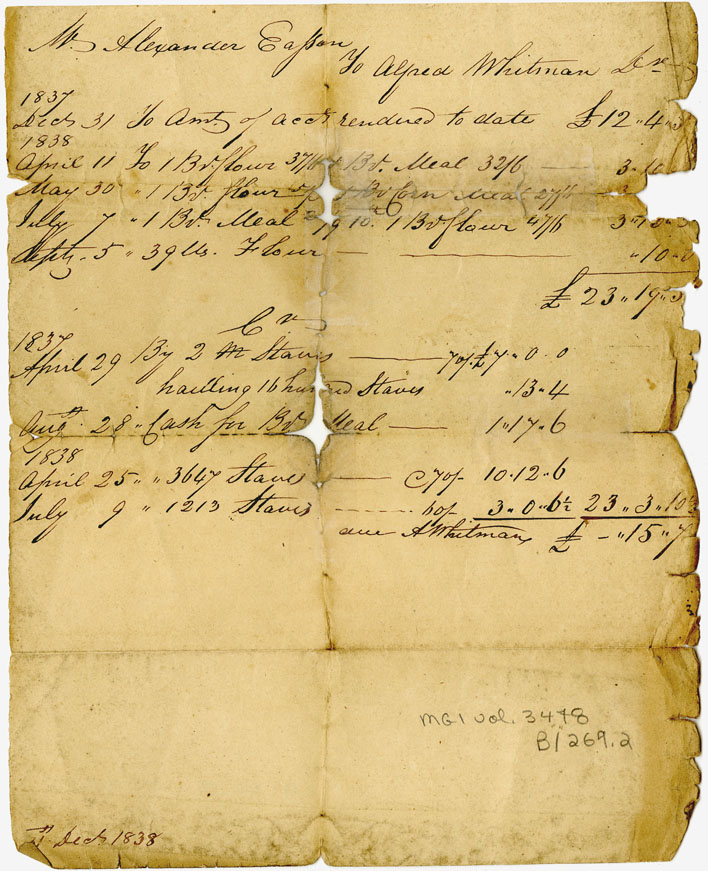 Mr Alexander Easson
To Alfred Whitman Dr
1837
Decr 31 To Amt of acct rendered to date £12 " 4 "
1838
April 11 To 1 Bd flour 37/6 1 Bd. Meal 32/6 — 3 " 10
May 30 " 1 Bd. flour Bd Corn Meal 27/6 —
July 7 " 1 Bd. Meal 1 Bd flour 47/6 3 "
Septr. 5 " 39 lbs. Flour — — " 10 "
£ 23 " 19 "
Cr
1837
April 29 By 2 M Staves — 70/. £7 " 0 . 0
haulling 16 hundred Staves " 13 " 4
Augt. 28 " Cash for Bd Meal — 1 " 17 " 6
1838
April 25 " " 3647 Staves — @ 70/. 10 . 12 . 6
July 9 " 1213 Staves ---- 50/. 3 . 0 . 6½ 23 " 3 . 10½
due A Whitman £ – " 15 " 7
MG1 vol. 3478
B/269.2
Decr 1838